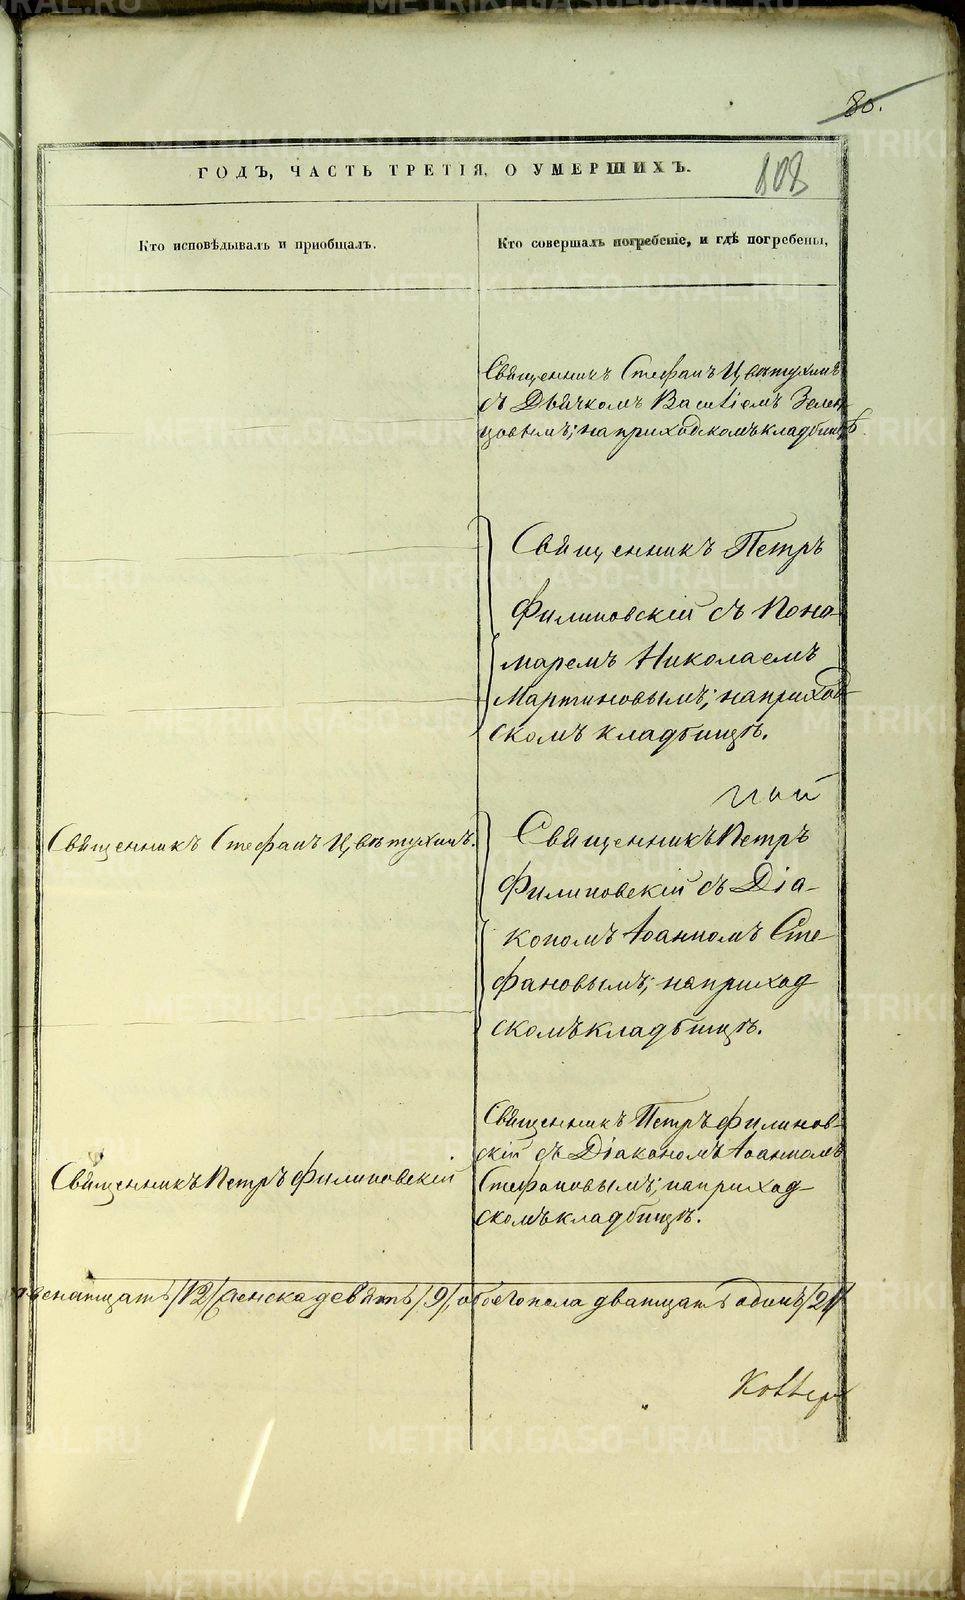 80.
ГОДЪ, ЧАСТЬ ТРЕТІЯ, О УМЕРШИХЪ.
808
Кто исповѣдывалъ и пріобщалъ.
Кто совершалъ погребеніе, и гдѣ погребены,
Священникъ Стефанъ Цвѣтухинъ
съ Дьячкомъ Василіемъ Зелен
цовымъ; на приходскомъ кладбищѣ.
Священникъ Петръ
Филиповскій съ Поно
маремъ Николаемъ
Мартиновымъ; на приход
скомъ кладбищѣ.
Священникъ Стефанъ Цвѣтухинъ.
Священникъ Петръ
Филиповскій съ Діа-
кономъ Іоанномъ Сте
фановымъ; на приход
скомъ кладбищѣ.
Священникъ Петръ Филиповскій
Священникъ Петръ Филипов-
скій съ Діакономъ Іоанномъ
Стефановымъ; на приход
скомъ кладбищѣ.
двенатцать /12/ женска девять /9/, обоего пола дватцать одинъ /21/
METRIKI.GASO-URAL.RU